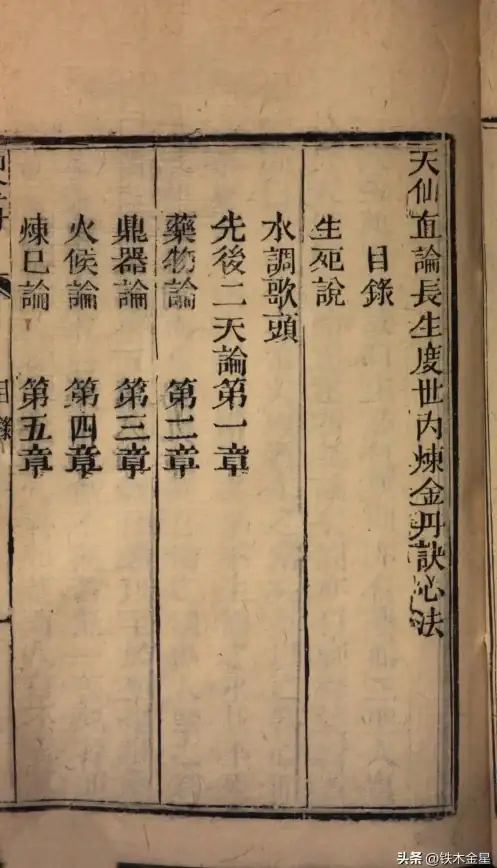 天仙直論長生度世內煉金丹訣心法
目錄
生死說
水調歌頭
先後二天論第一章
藥物論 第二章
鼎器論 第三章
火候論 第四章
煉己論 第五章
目錄
头条 @铁木金星